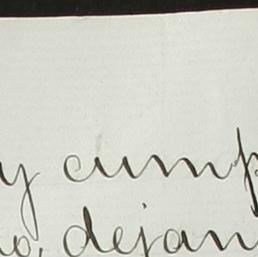 y cump
o, dejan